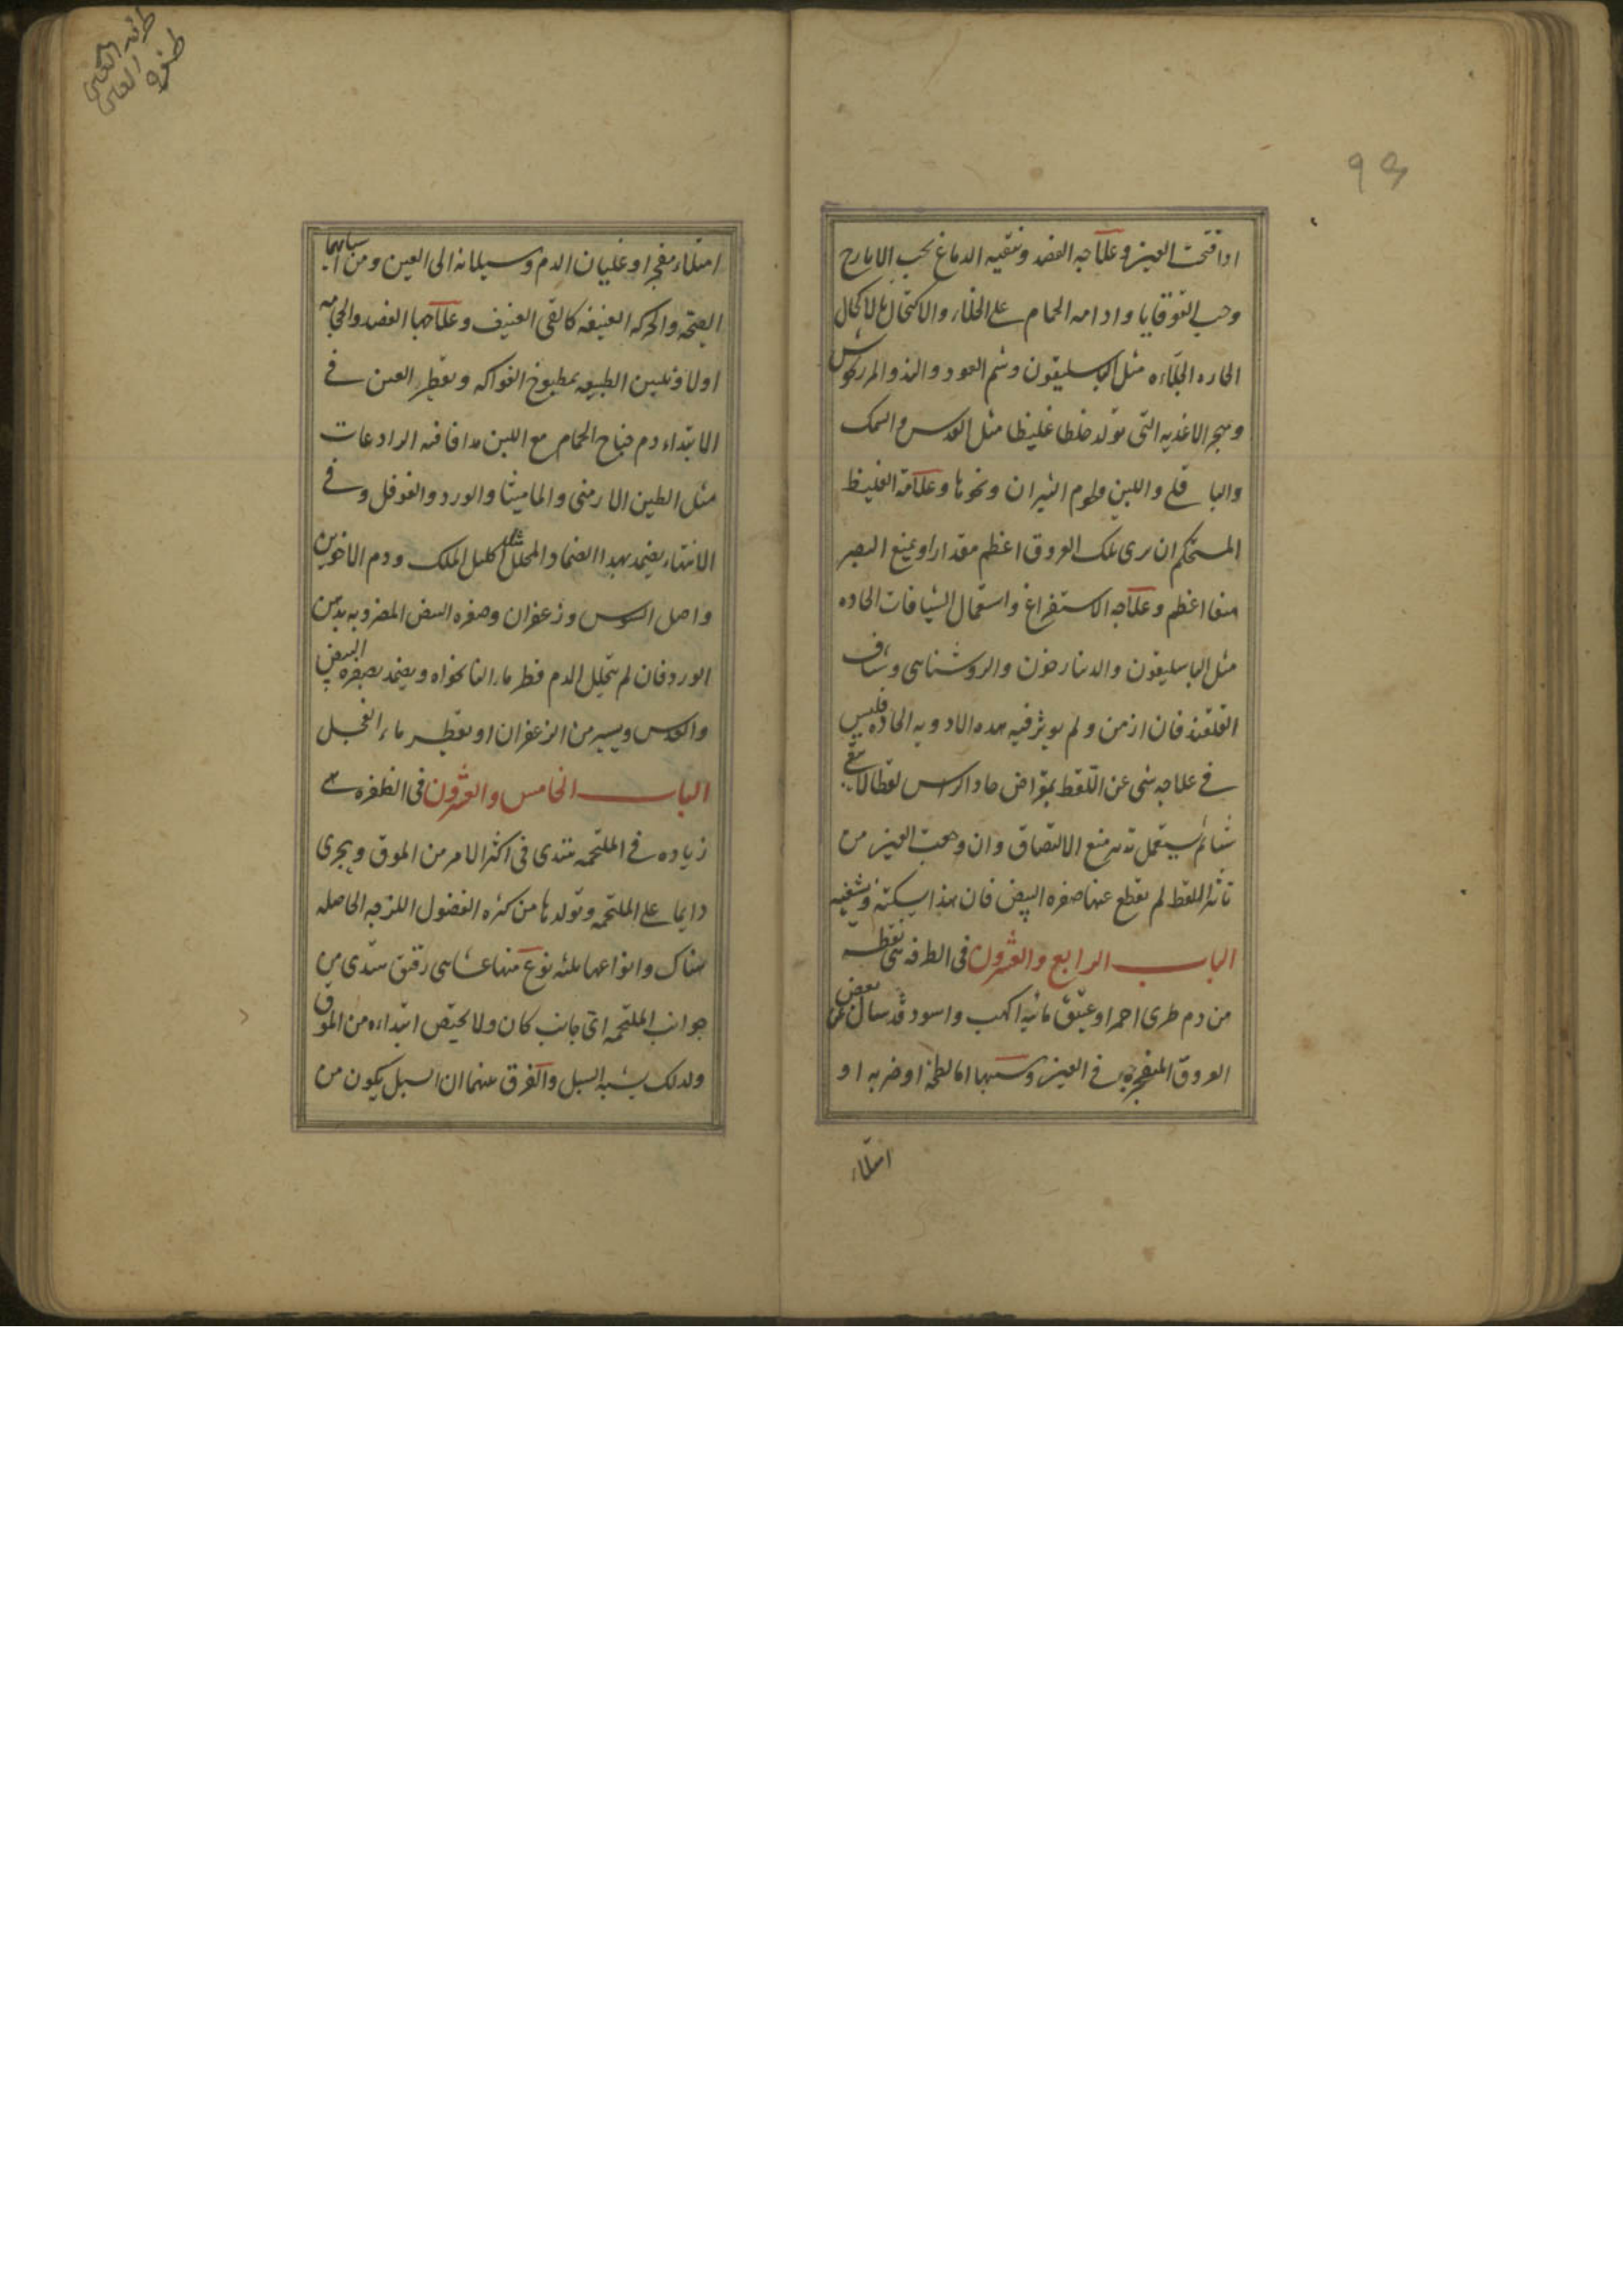 ۹۳
اذا فتحت العين وعلاجه الفصد وتنقيه الدماغ بحب الايارج
وحب القوقايا وادامه الحمام على الخلاء والاكتحال بالاكحال
الحاره الجلاءه مثل الباسليقون وشم العود والند والمرزنجوش
وهجر الاغذيه التى تولد خلطا غليظا مثل العدس والسمك
والباقلى واللبن ولحوم الثيران ونحوها وعلامة الغليظ
المستحكم ان يرى تلك العروق اعظم مقدارا ويمنع البصر
منعا اعظم وعلاجه الاستفراغ واستعمال الشيافات الحاده
مثل الباسليقون والدينارخون والروشناى وشياف
فان ازمن ولم يوثر فيه هذه الادويه الحاده فليس
فى علاجه شى عن اللقط بمقراض حاد الراس لقطا لا يبقى
شيئا ثم يستعمل تدبير منع الالتصاق وان وجعت العين من
تاثير اللقط لم يقطع عنها صفره البيض فان هذا يسكنه ويشفيه
الباب الرابع والعشرون فى الطرفه هى نقطه
من دم طرى احمر او عتيق مائت اكهب واسود قد سال عن بعض
العروق المنفجره فى العين وسببها اما لطمة او ضربه او
امتلاء
طرفة العين
ظفره العين
امتلاء مفجر او غليان الدم وسيلانه الى العين ومن اسبابها
الصيحة والحركه العنيفه كالقى العنيف وعلاجها الفصد والحجامه
اولا وتليين الطبيعه بمطبوخ الفواكه وتقطير العين فى
الابتداء دم جناح الحمام مع اللبن مدافا فيه الرادعات
مثل الطين الارمنى والماميثا والورد والفوفل وفى
الانتهاء يضمد بهذا الضماد المحلل مثل اكليل الملك ودم الاخوين
واصل السوس وزعفران وصفره البيض المضروبه بدهن
الورد فان لم يتحلل الدم قطر ماء النانخواه ويضمد بصفره البيض
والعدس ويسير من الزعفران او يقطر ماء الفجل
الباب الخامس والعشرون فى الظفره هى
زياده فى الملتحمه تبتدى فى اكثر الامر من الموق ويجرى
دايما على الملتحمه وتولدها من كثره الفضول اللزجه الحاصله
هناك وانواعها ثلثه نوع منها غشاى رقيق يبتدى من
جوانب الملتحمه اى جانب كان ولا يختص ابتداءه من الموق
ولذلك يشبه السبل والفرق بينهما ان السبل يكون من